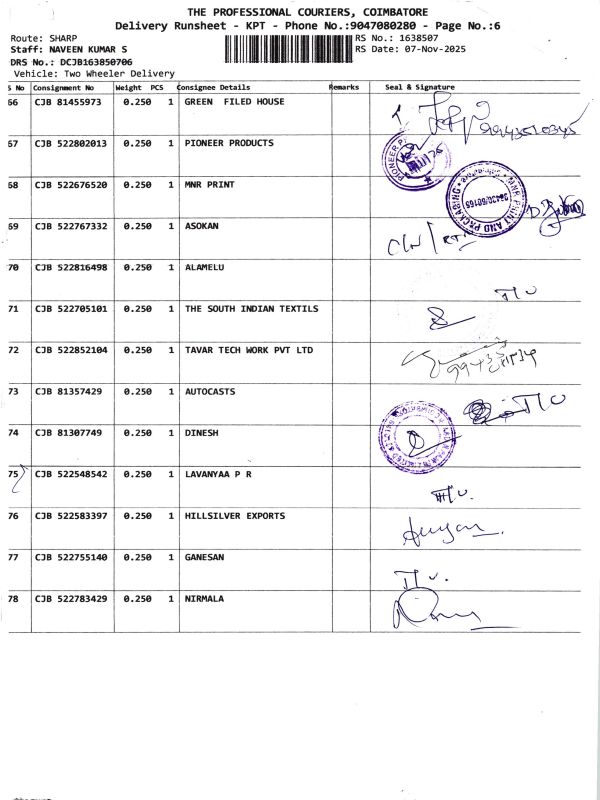 THE PROFESSIONAL COURIERS, COIMBATORE
Delivery Runsheet - KPT - Phone No.:9047080280 - Page No.:6
Route: SHARP RS No.: 1638507
Staff: NAVEEN KUMAR S RS Date: 07-Nov-2025
DRS No.: DCJB163850706
Vehicle: Two Wheeler Delivery
S No Consignment No Weight PCS Consignee Details Remarks Seal & Signature
66 CJB 81455973 0.250 1 GREEN FILED HOUSE
67 CJB 522802013 0.250 1 PIONEER PRODUCTS
68 CJB 522676520 0.250 1 MNR PRINT MNR PRINT AND PACKAGING
69 CJB 522767332 0.250 1 ASOKAN
70 CJB 522816498 0.250 1 ALAMELU
71 CJB 522705101 0.250 1 THE SOUTH INDIAN TEXTILS
72 CJB 522852104 0.250 1 TAVAR TECH WORK PVT LTD
73 CJB 81357429 0.250 1 AUTOCASTS
74 CJB 81307749 0.250 1 DINESH
75 CJB 522548542 0.250 1 LAVANYAA P R
76 CJB 522583397 0.250 1 HILLSILVER EXPORTS
77 CJB 522755140 0.250 1 GANESAN
78 CJB 522783429 0.250 1 NIRMALA